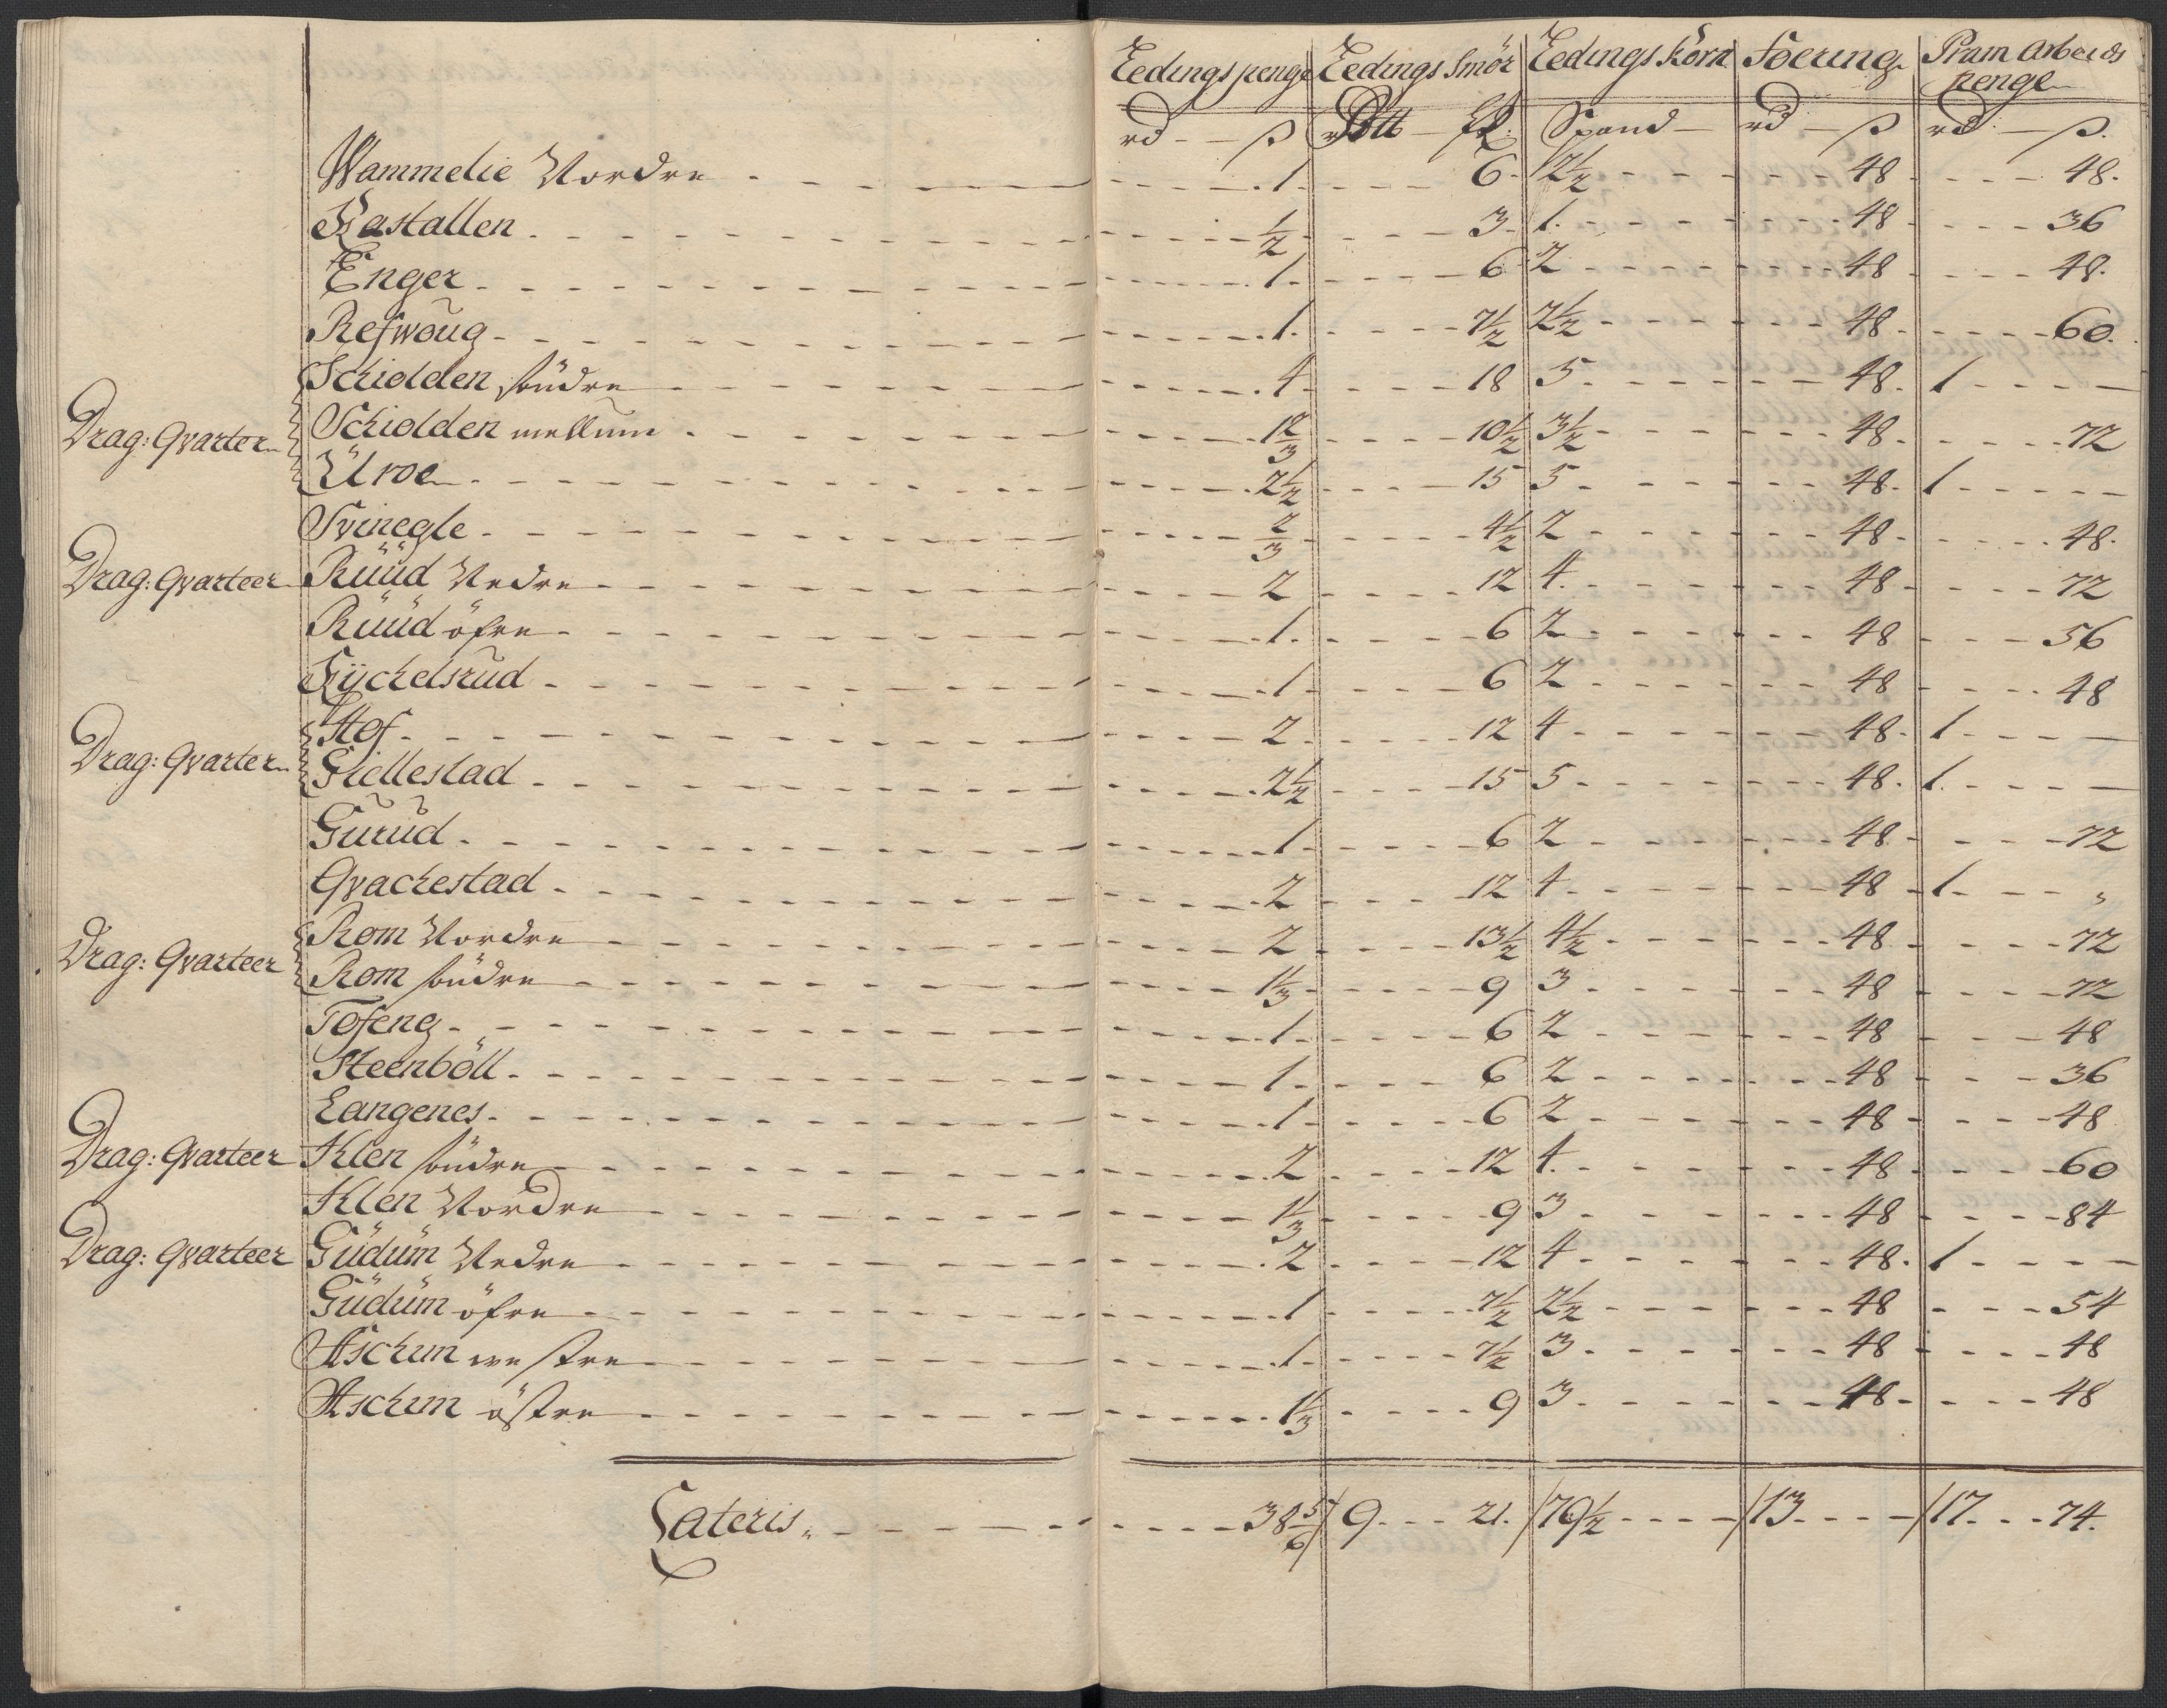 Leedings penge | Leedings Smör | Leedings Korn | Foering | Pram Arbeids penge
rd ß | ℔ | Spand | rd ß | rd ß.
Wammelie Nordre 1. 6. 2½ 48 48.
Kastallen ½ 3. 1. 48 36
Enger 1. 6 2 48 48.
Refwoug 1. 7½ 2½ 48. 60.
Schiolden söndre 4 18 5 48. 1
Drag: Qvarter Schiolden mellum 1⅔ 10½ 3½ 48. 72
Uroe 2½ 15 5 48. 1
Svinegle ⅔ 4½ 2 48. 48.
Drag: Qvarteer Rüüd Nedre 2 12 4. 48 72
Rüüd öfre 1. 6 2 48 56
Kÿchelsrud 1 6 2 48 48
Hof 2 12 4 48. 1
Drag: Qvarter Giellestad 2½ 15 5 48. 1.
Gurud 1 6 2 48 72
Qvachestad 2 12 4 48 1 „
Rom Nordre 2 13½ 4½ 48 72
Drag: Qvarteer Rom söndre 1⅓ 9 3 48 72
Tofeng 1 6 2 48 48
Steenböll 1 6 2 48 36
Langenes 1 6 2 48 48
Drag: Qvarteer Klen söndre 2 12 4. 48 60
Klen Nordre 1⅓ 9 3 48 84
Drag: Qvarteer Güdüm Nedre 2 12 4 48. 1
Güdüm öfre 1 7½ 2½ 48 54
Aschim westre 1 7½ 3 48 48
Aschim östre 1⅓ 9 3 48 48
Lateris 38⅚ 9 21. 76½ 13 17 74.